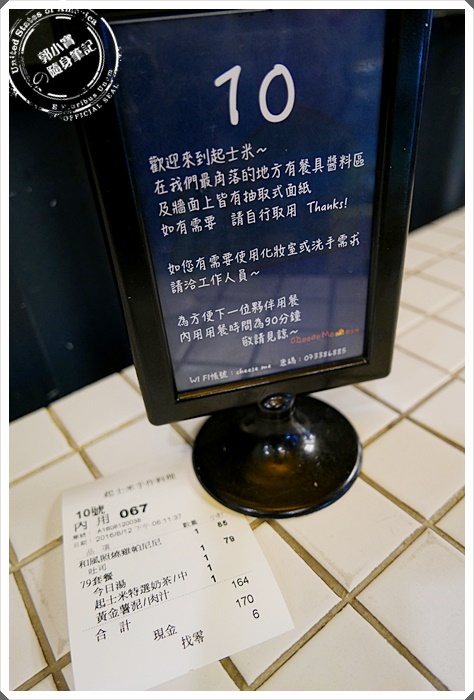 United States of America
郭小寶
の隨身筆記
E Pluribus Unum
OFFICIAL SEAL
10
歡迎來到起士米~
在我們最角落的地方有餐具醬料區
及牆面上皆有抽取式面紙
如有需要 請自行取用 Thanks!
如您有需要使用化妝室或洗手需求
請洽工作人員~
為方便下一位夥伴用餐
內用用餐時間為90分鐘
敬請見諒~
WIFI帳號:cheese me 密碼:073386885
起士米手作料理
10號
內 用 067
日期: 2016/8/12 下午 06:11:37
品 項 數量 小計
和風照燒雞帕尼尼 1 85
吐司
79套餐 1 79
今日湯 1
起士米特選奶茶/中 1
黃金薯泥/肉汁 1
合 計 164
現金 170
找零 6